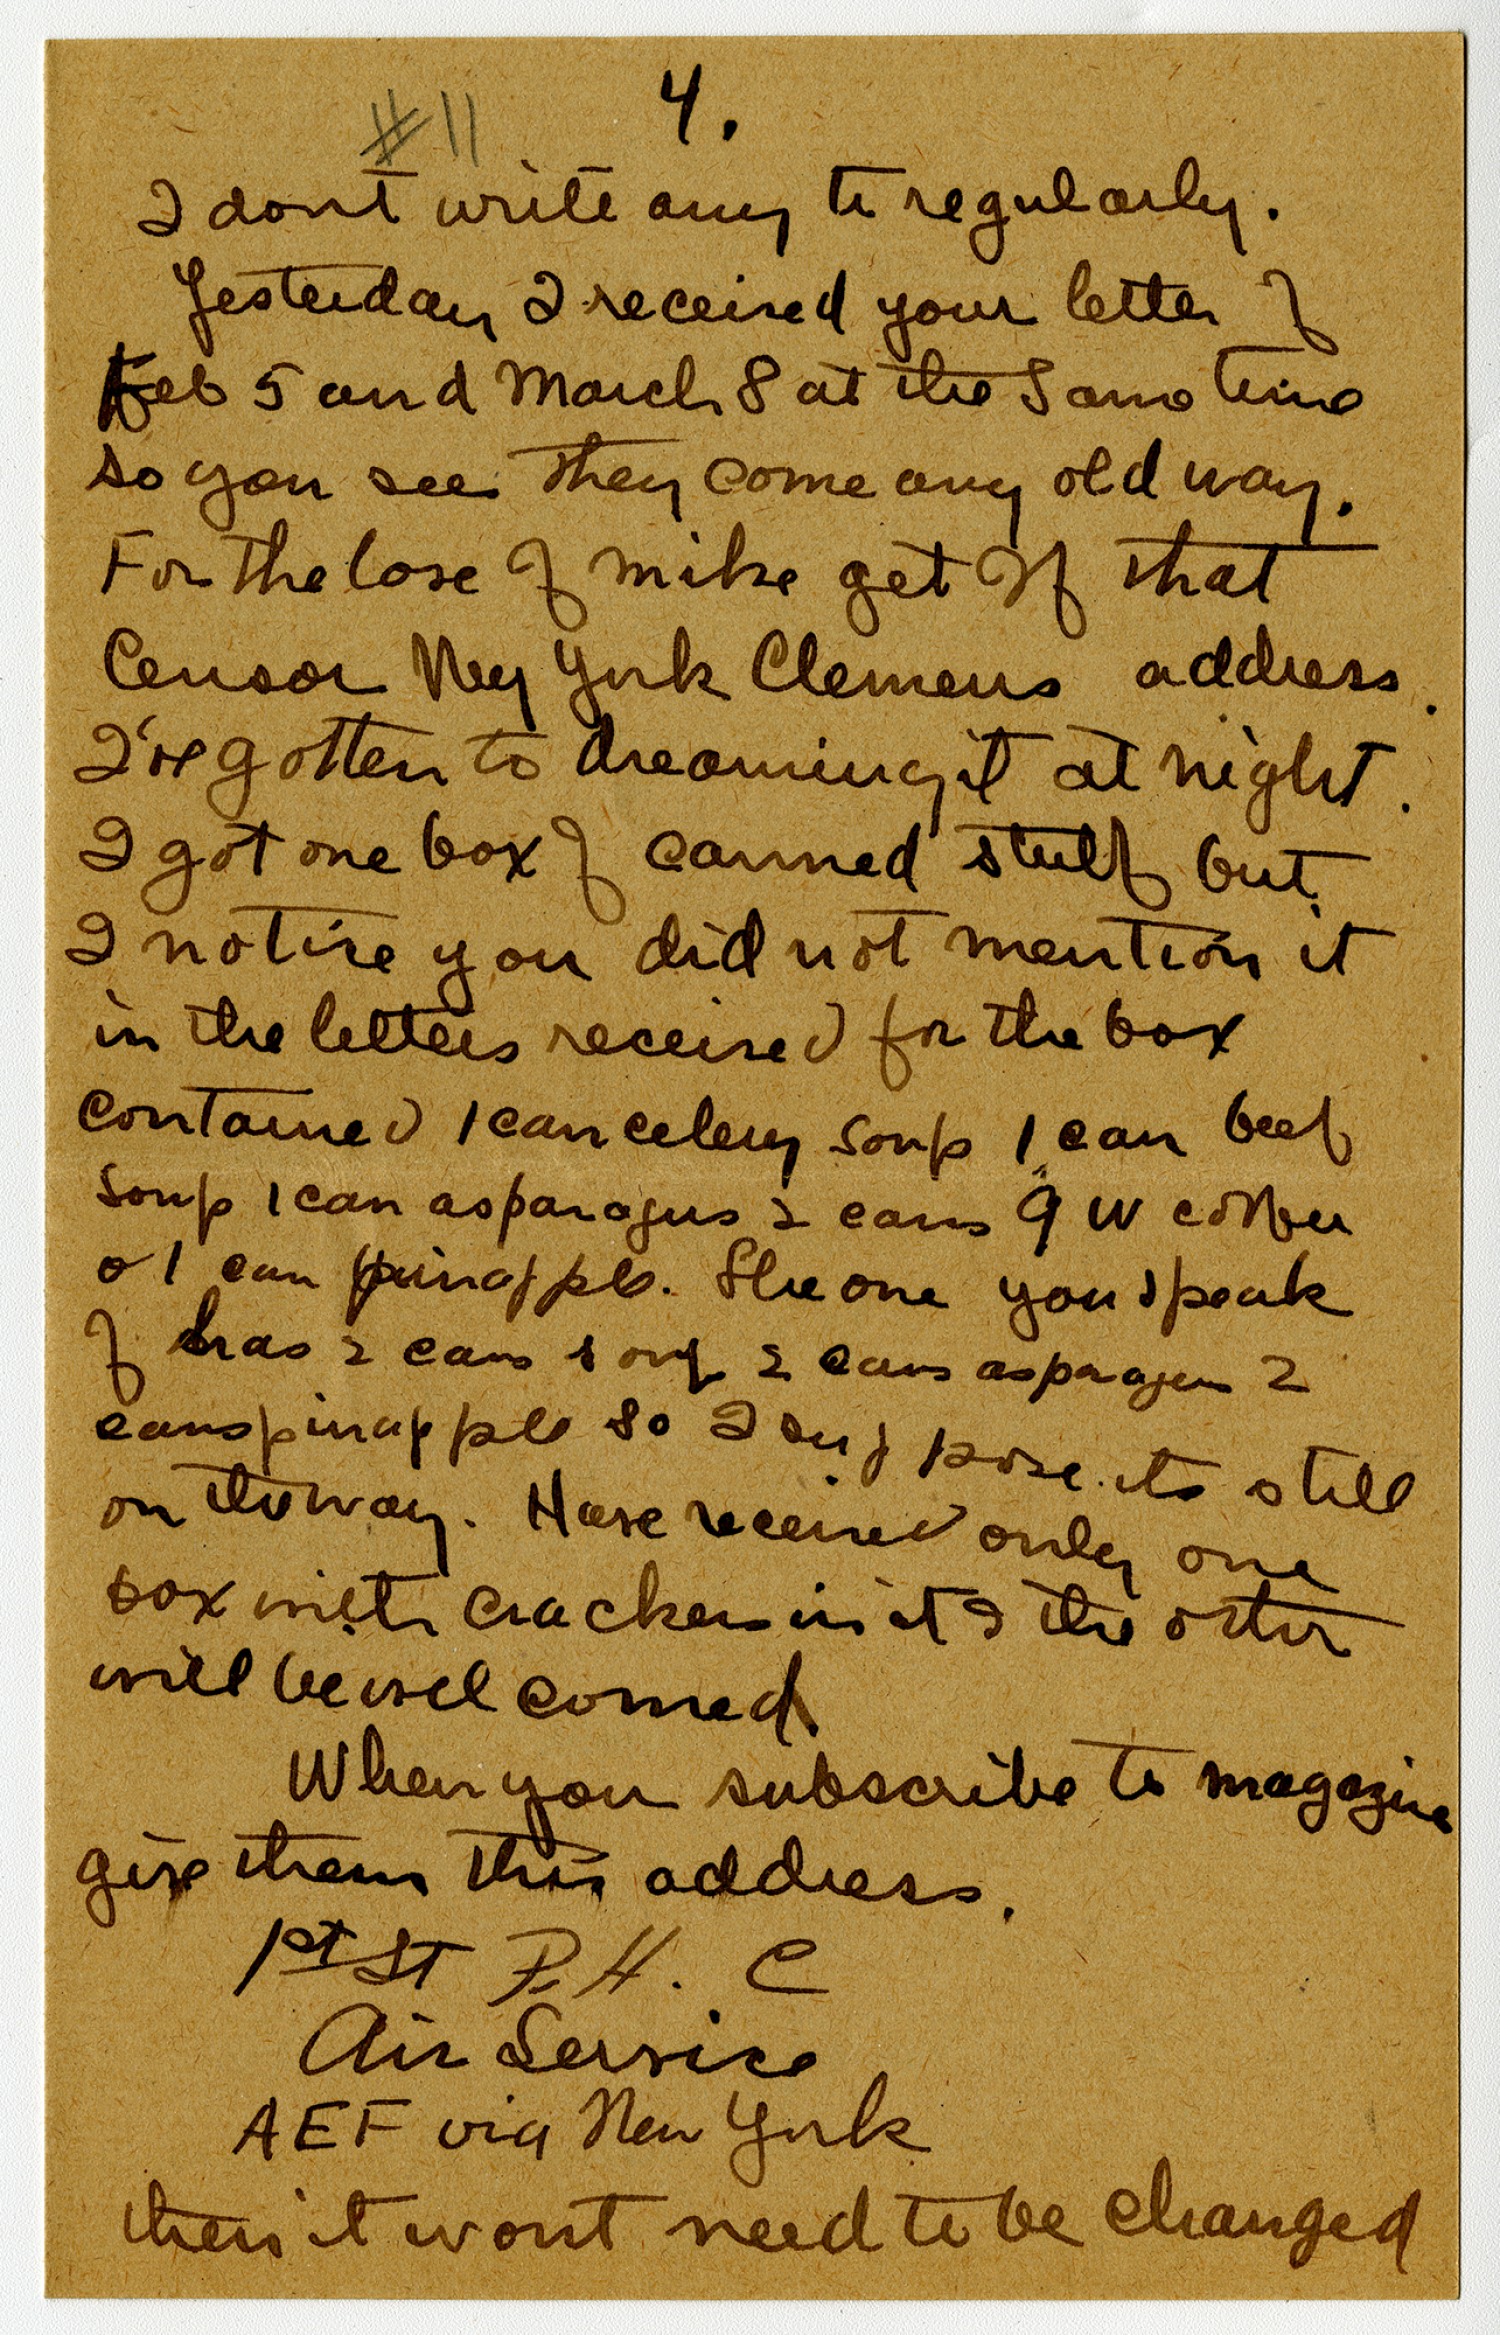 #11 4.
I dont write any to regularly.
Yesterday I received your letter of
Feb 5 and March 8 at the same time
so you see they come any old way.
For the love of mike get off that
Censor Ney York Clemens address.
I've gotten to dreaming it at night.
I got one box of canned stuff but
I notice you did not mention it
in the letters received for the box
contained 1 can celery soup 1 can beef
soup 1 can asparagus 2 cans G W coffee
& 1 can pinapple. The one you speak
of has 2 cans soup 2 cans asparagus 2
cans pinapple so I suppose its still
on the way. Have received only one
box with crackers in it & the other
will be welcomed.
When you subscribe to magazine
give them this address.
1st Lt P. H. C
Air Service
AEF via New York
then it wont need to be changed